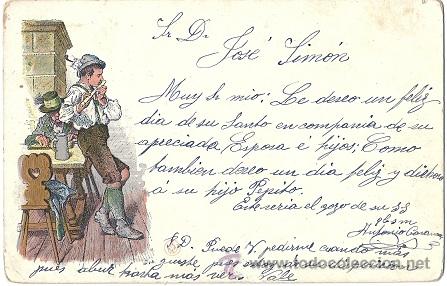 Sr. D.
José Simón
Muy Sr mio: Le deseo un feliz
dia de su Santo en compania de su
apreciada Espora e hijos; Como
tambien deseo un dia feliz y dichoso
á su hijo Pepito.
Este seria el gozo de su SS
q b s m
Antonio
P.D. Puede V pedirme cuando mas
guste pues
pues abur hasta mas ver. Vale
todocoleccion.net